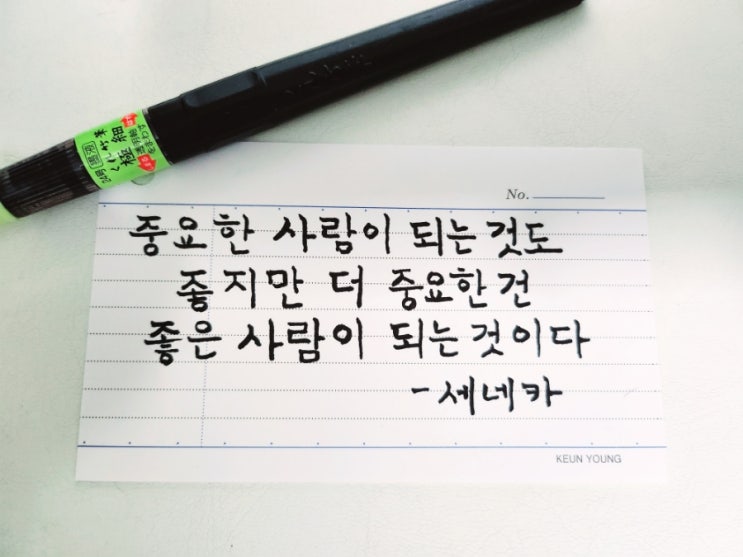 くれ竹筆
極細
No.
중요한 사람이 되는것도
좋지만 더 중요한건
좋은 사람이 되는것이다
-세네카
KEUN YOUNG